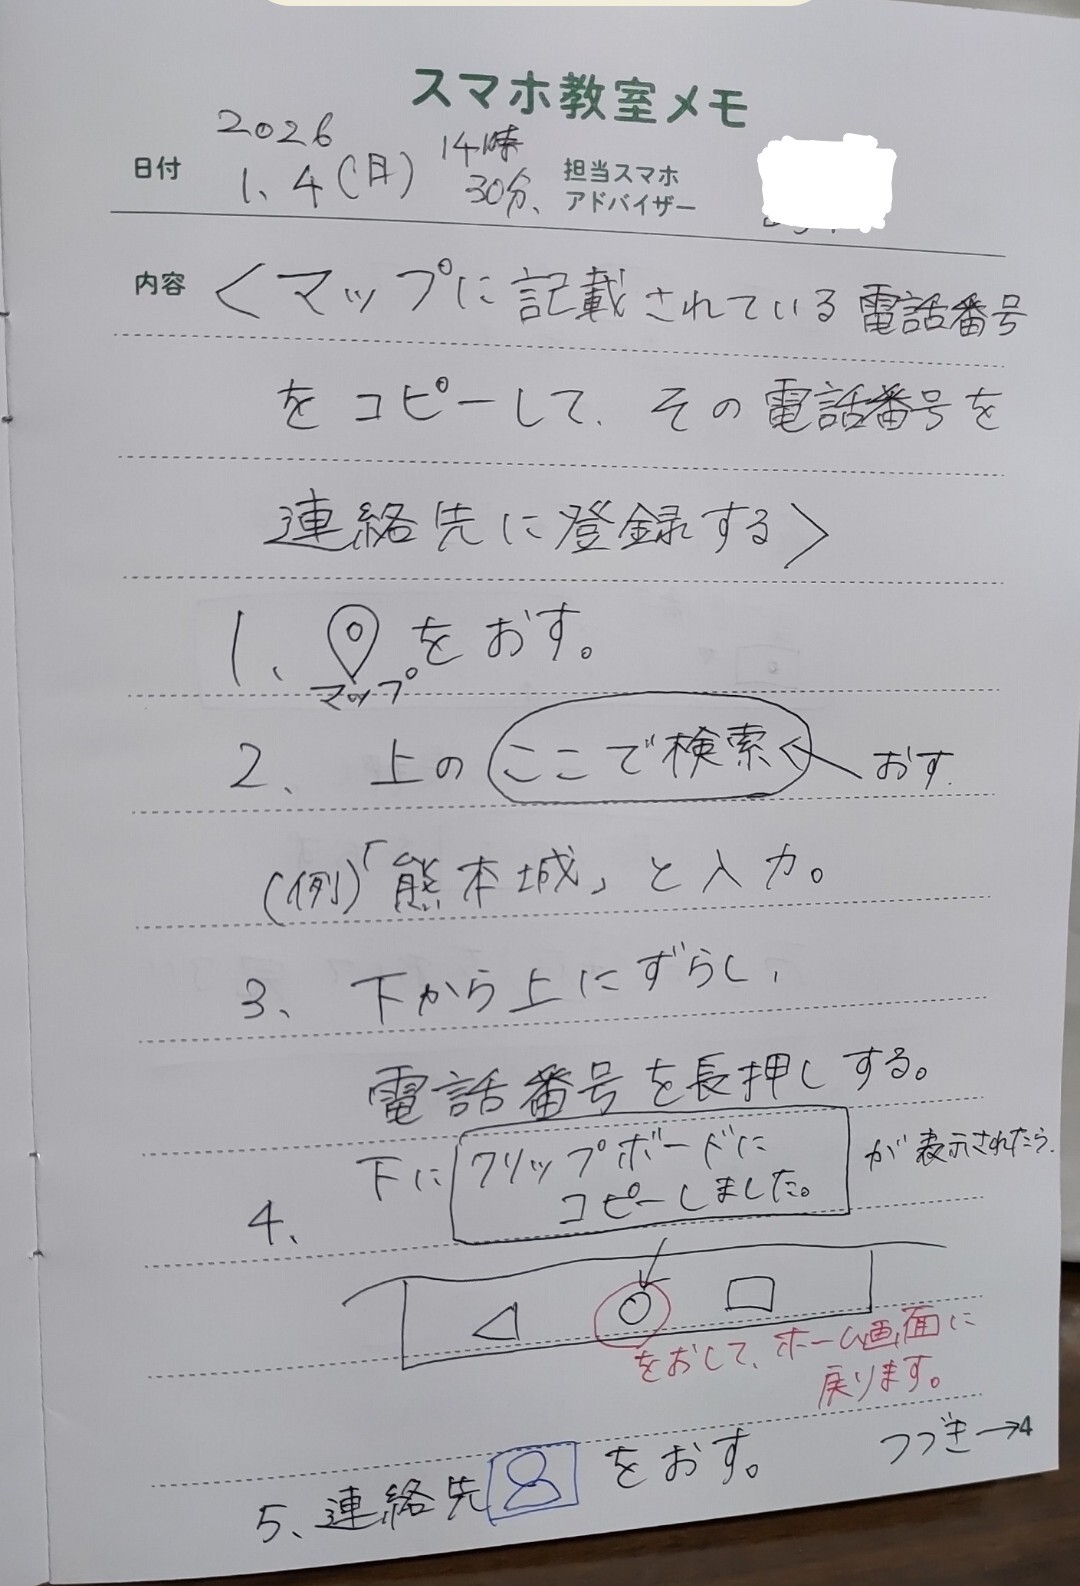 スマホ教室メモ
日付 2026 1.4(月) 14時30分、 担当スマホアドバイザー
内容 <マップに記載されている電話番号
をコピーして、その電話番号を
連絡先に登録する>
1、をおす。
マップ
2、上の ここで検索 ← おす.
(例)「熊本城」と入力。
3、下から上にずらし、
電話番号を長押しする。
4、下に クリップボードに
コピーしました。 が表示されたら.
◁ ○ □
をおして、ホーム画面に
戻ります。
5、連絡先 をおす。 つづき→4